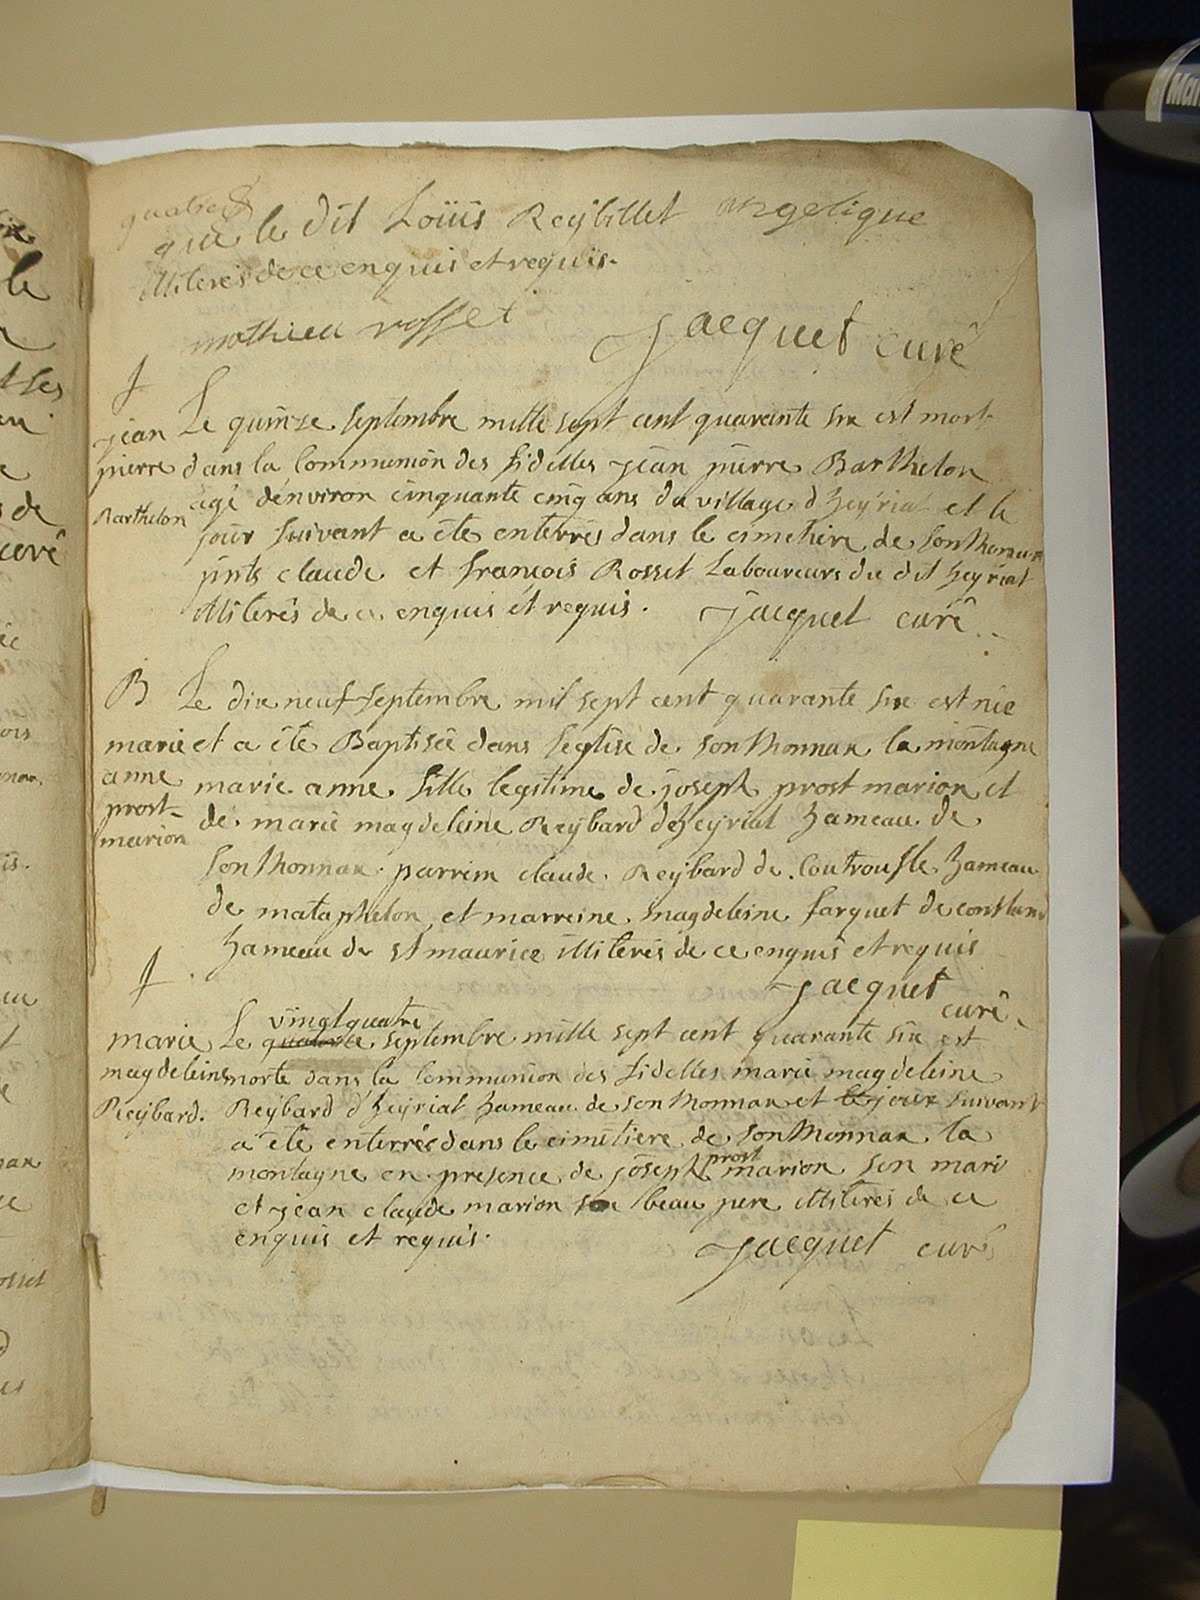 quatre
que le dit Loüis Reÿbillet angelique
illiterés de ce enquis et requis.
mathieu rosset
Jacquet curé
Le quinze septembre mille sept cent quarante six est mort
jean
pierre
Barthelon
dans la Communion des fidelles jean pierre Barthelon
agé d'énviron cinquante cinq ans du village d'heÿriat et le
jour suivant a été enterrés dans le cimetiere de Sonthonnax
pnts claude et françois Rosset Laboureurs du dit heÿriat
illiterés de ce enquis et requis. Jacquet curé
B Le dix neuf septembre mil sept cent quarante six est née
marie
anne
prost-
marion
et a été Baptisée dans l'eglise de Sonthonnax la montagne
marie anne fille legitime de joseph prost marion et
de marie magdeleine Reÿbard d'heÿriat hameau de
Sonthonnax parrein claude Reÿbard de Coutroufle hameau
de mataphelon et marreine magdeleine farguet de
hameau de st maurice illiterés de ce enquis et requis
Jacquet
curé
vingtquatre
Le quatorze septembre mille sept cent quarante six est
marie
magdeleine
Reÿbard.
morte dans la Communion des fidelles marie magdeleine
Reÿbard d'heÿriat hameau de Sonthonnax et le jour suivant
a été enterrée dans le cimetiere de Sonthonnax la
prost
montagne en presence de joseph marion son mari
et jean claude marion son beau pere illiterés de ce
enquis et requis.
Jacquet curé